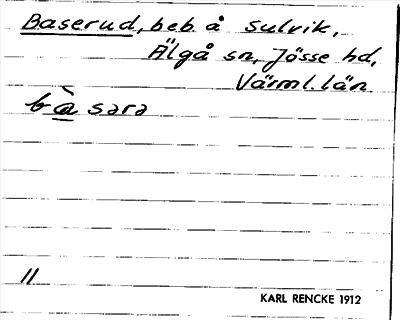 Baserud, beb. å Sulvik,
Älgå sn, Jösse hd,
Värml. län
bàsərə
11
KARL RENCKE 1912